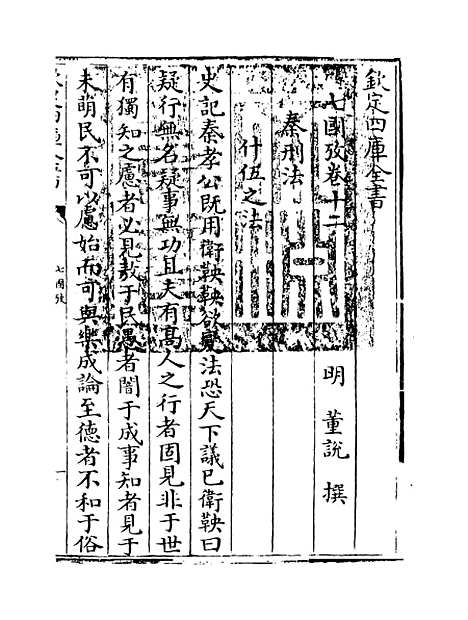 欽定四庫全書
七國攷卷十二
明 董說 撰
秦刑法
什伍之法
史記秦孝公既用衛鞅鞅欲變法恐天下議已衛鞅曰
疑行無名疑事無功且夫有髙人之行者固見非于世
有獨知之慮者必見敖于民愚者闇于成事知者見于
未萌民不可以慮始而可與樂成論至徳者不和于俗
七國攷